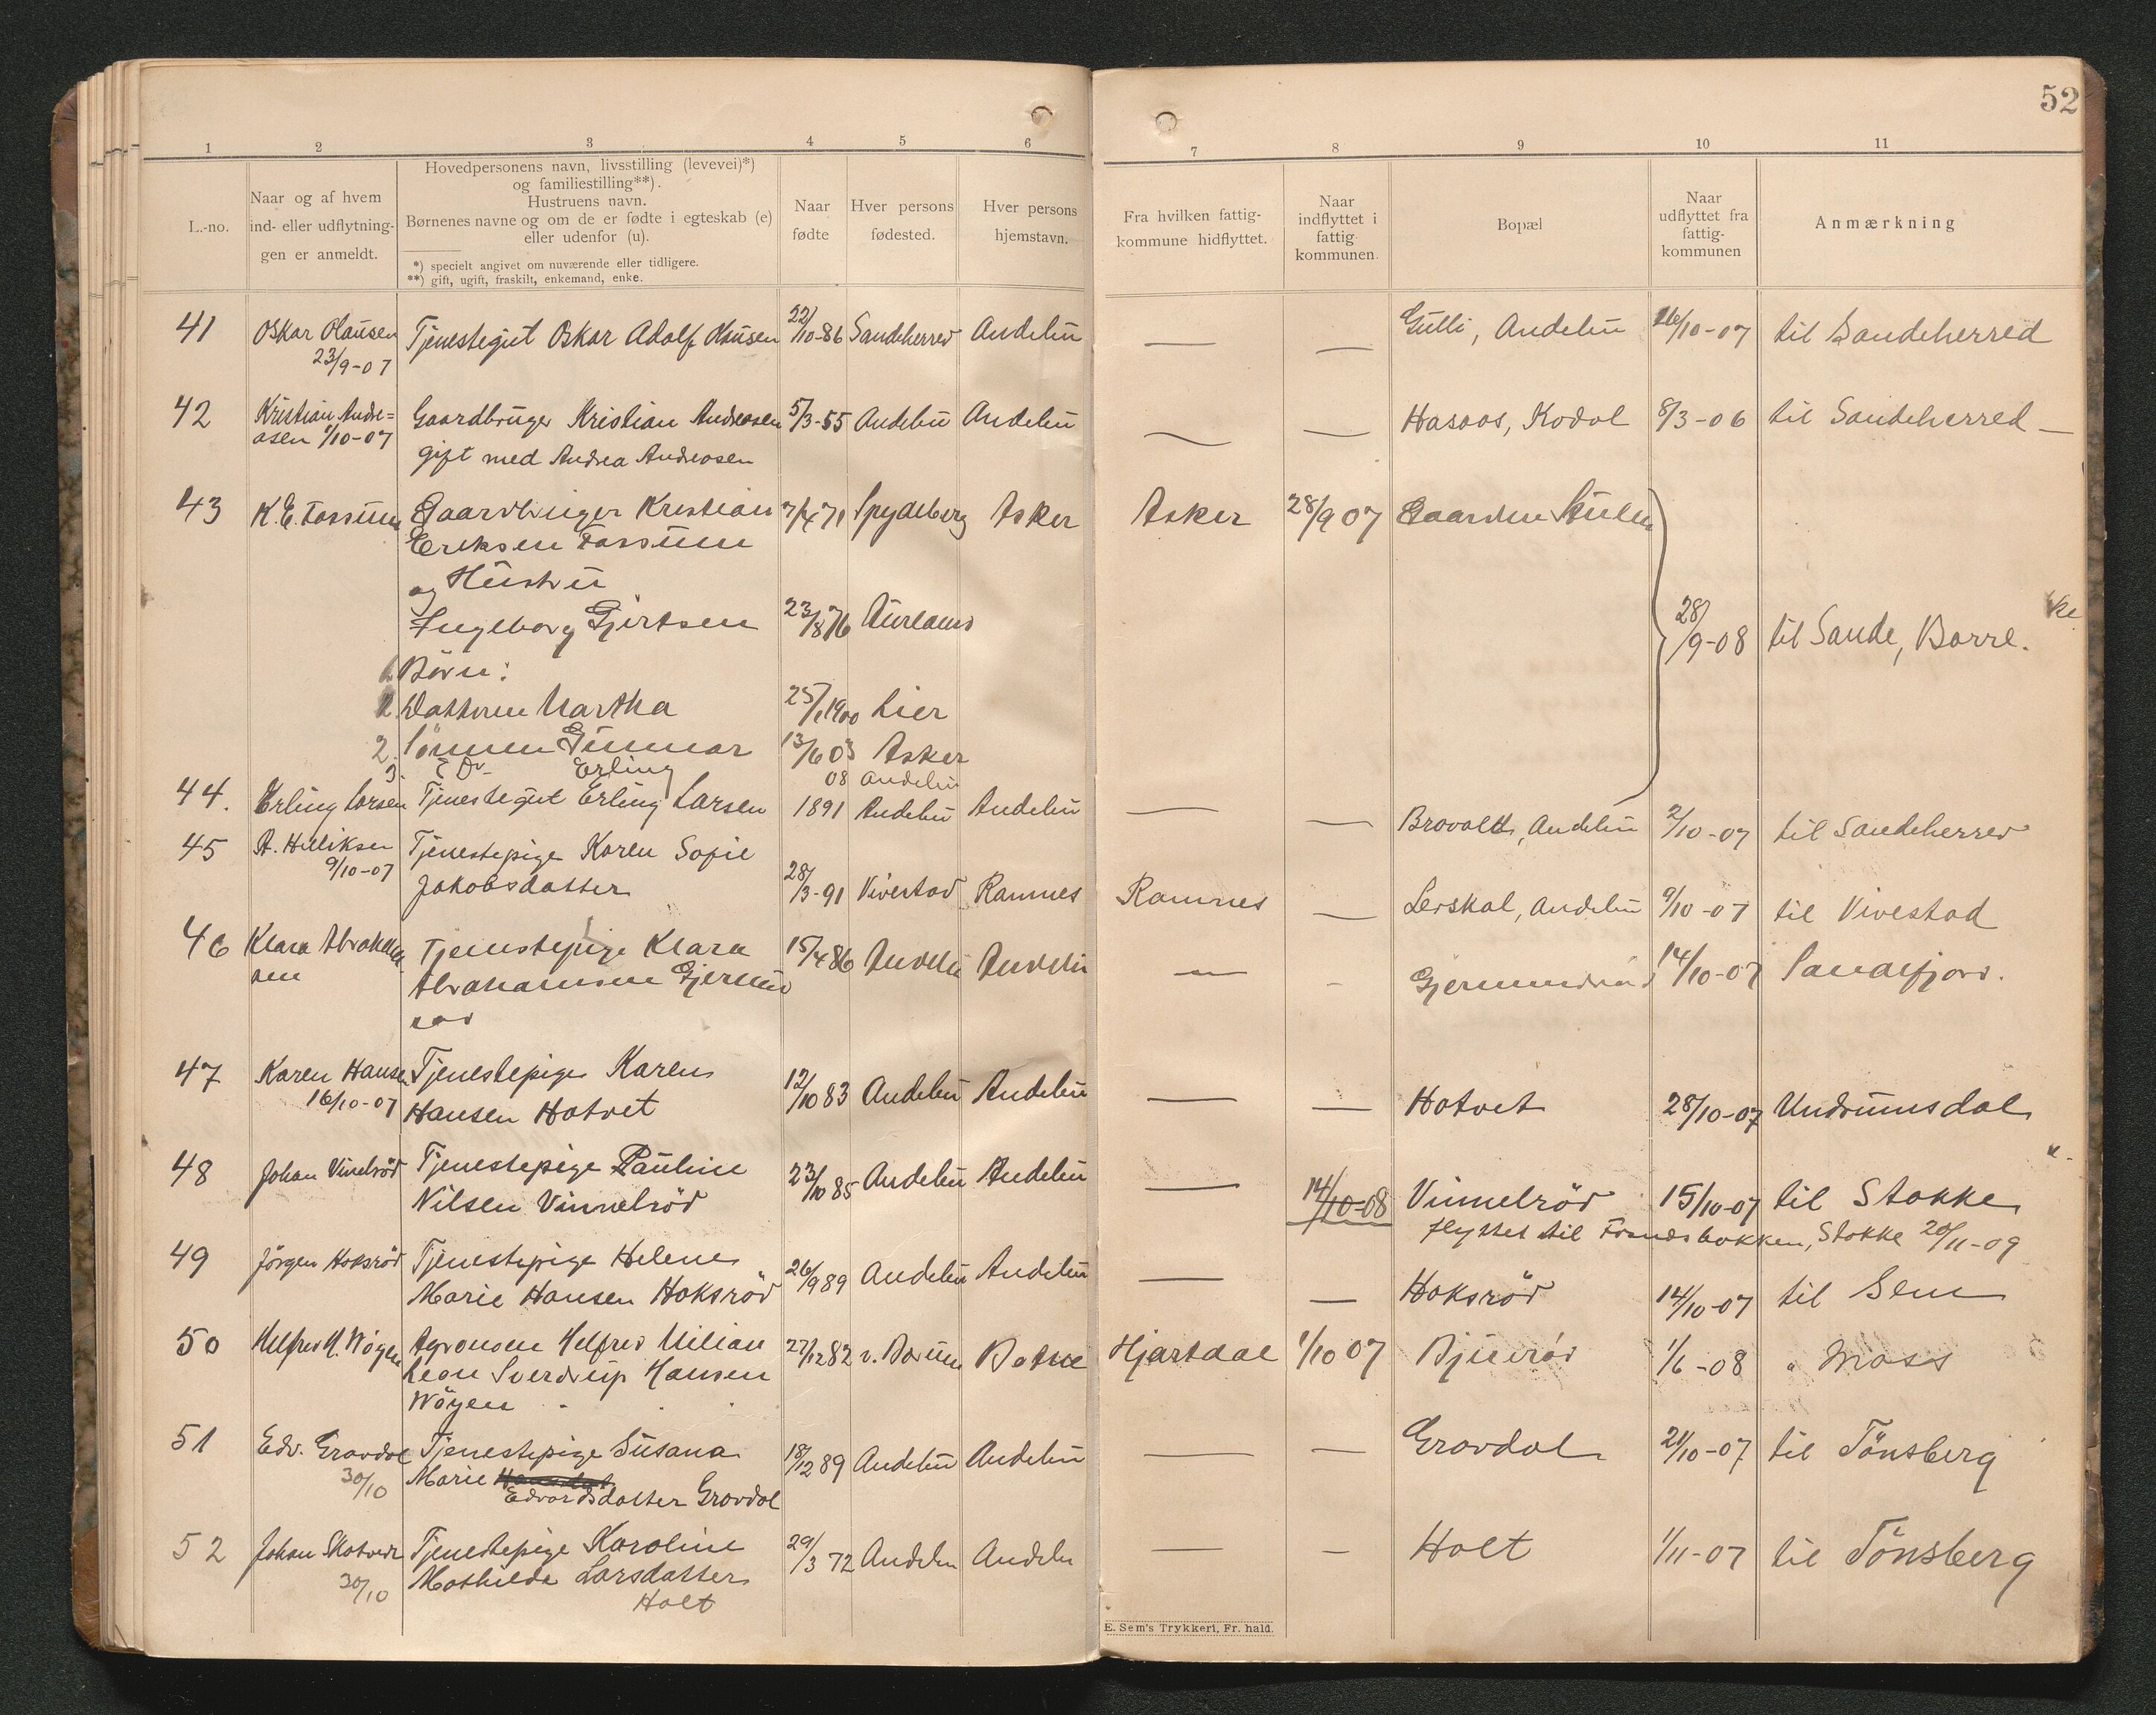 52
1 2 3 4 5 6 7 8 9 10 11
L.-no.
Naar og af hvem
ind- eller udflytnin-
gen er anmeldt.
Hovedpersonens navn, livsstilling (levevei)*)
og familiestilling**).
Hustruens navn.
Børnenes navne og om de er fødte i egteskab (e)
eller udenfor (u).
*) specielt angivet om nuværende eller tidligere.
**) gift, ugift, fraskilt, enkemand, enke.
Naar
fødte
Hver persons
fødested.
Hver persons
hjemstavn.
Fra hvilken fattig-
kommune hidflyttet.
Naar
indflyttet i
fattig
kommunen.
Bopæl
Naar
udflyttet fra
fattig-
kommunen
Anmærkning
41 Oskar Olausen Tjenestegut Oskar Adolf Olausen 22/10-86 Sandeherred Andebu — — Gulli, Andebu 26/10-07 til Sandeherred
23/9-07
42 Kristian Andre= Gaardbruger Kristian Andreasen 5/3-55 Andebu Andebu — — Hasaas, Kodal 8/3-06 til Sandeherred —
asen 1/10-07 gift med Andrea Andreasen
43 K. E. Fossum Gaardbruger Kristian 7/4 71 Spydeberg Asker Asker 28/9 07 Gaarden
Eriksen Fossum
og Hustru
Ingeborg Gjertsen 23/8 76 Aurland 28/9-08 til Sande, Borre.
Børn:
1. Datteren Martha 25/1 1900 Lier
2. Sønnen Gunnar 13/6 03 Asker
3. Do Erling 08 Andebu
44. Erling Larsen Tjenestegut Erling Larsen 1891 Andebu Andebu — — Bravalls, Andebu 2/10-07 til Sandeherred
45 A. Tjenestepige Karen Sofie
9/10-07 Jakobsdatter 28/3-91 Vivestad Ramnes Ramnes — Lerskal, Andebu 9/10-07 til Vivestad
46 Klara Abraham Tjenestepige Klara 15/4 86 Andebu Andebu — - Gjermundrød 14/10-07 Sandefjord.
sen Abrahamsen Gjermund
rød
47 Karen Hansen Tjenestepige Karen 12/10 83 Andebu Andebu — — Hotvet 28/10-07 Undrumsdal
16/10-07 Hansen Hotvet
48 Johan Vinelrød Tjenestepige Pauline 23/10 85 Andebu Andebu — 14/10-08 Vinnelrød 15/10-07 til Stokke
Nilsen Vinnelrød flyttet til Frandsbakken, Stokke 20/11-09
49 Jörgen Hoksrød Tjenestepige Helene 26/9 89 Andebu Andebu — — Hoksrød 14/10-07 til Sem
Marie Hansen Hoksrød
50 Helfred H. Wøyen Agronom Helfred Milian 27/12 82 v. Bærum Botne Hjartdal 1/10 07 Bjuerød 1/6-08 " Moss
Leon Sverdrup Hansen
Wøyen
51 Edv. Gravdal Tjenestepige Susana 18/12 89 Andebu Andebu — — Gravdal 21/10-07 til Tönsberg
30/10 Marie Edvardsdatter Gravdal
52 Johan Skatvedt Tjenestepige Karoline 29/3 72 Andebu Andebu — — Holt 1/11-07 til Tönsberg
30/10 Mathilde Larsdatter
Holt
E. Sem's Trykkeri, Fr. hald.